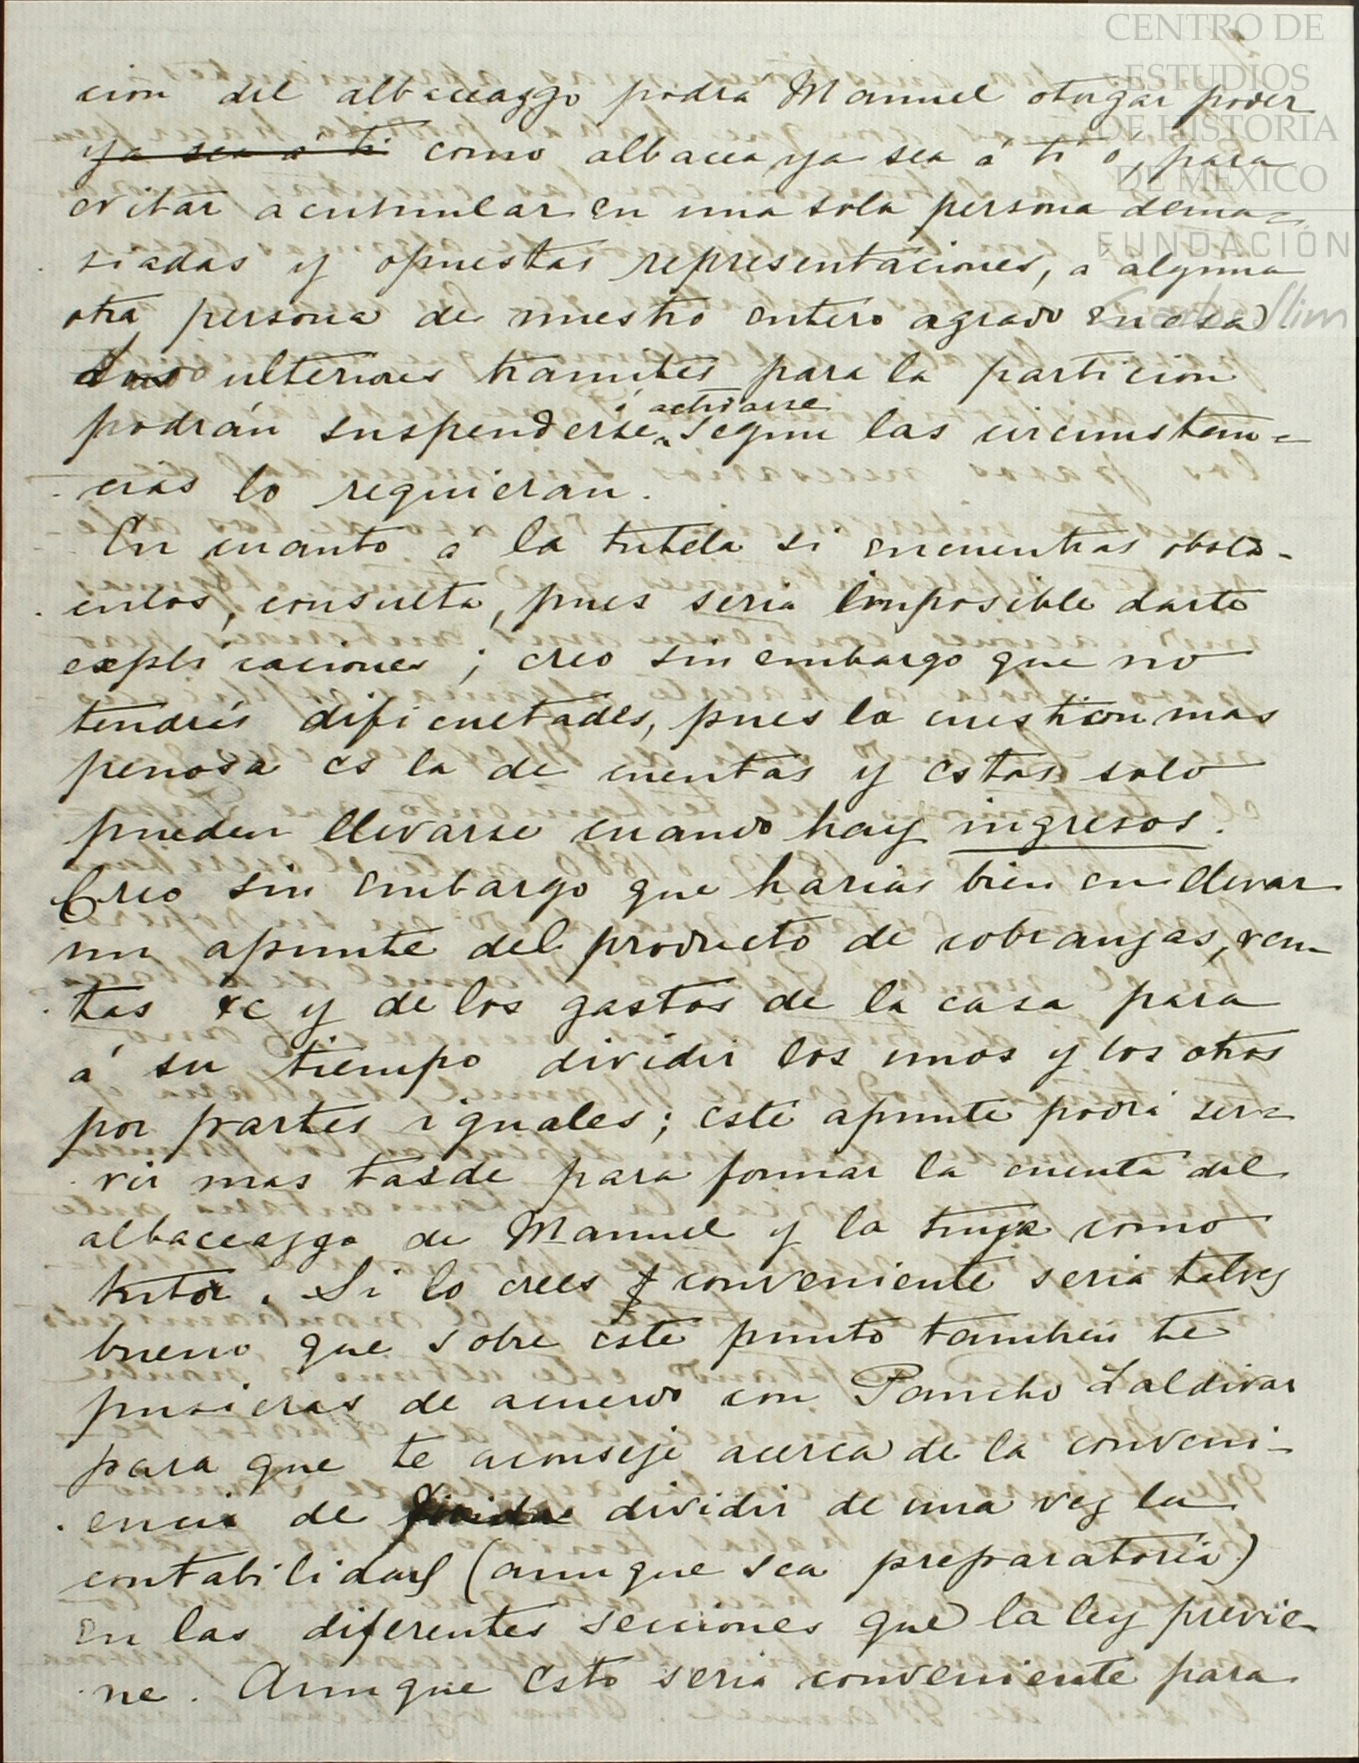 CENTRO DE
ESTUDIOS
DE HISTORIA
DE MÉXICO
FUNDACIÓN
Carlos Slim
cion del albaceazgo podrá Manuel otorgar poder
ya sea á ti como albacea ya sea á ti ó, para
evitar acumular en una sola persona dema=
siadas y opuestas representaciones, a alguna
otra persona de nuestro entero agrado en esa
Los ulteriores tramites para la particion
podrán suspenderse ó activarse segun las circunstan=
cias lo requieran.
En cuanto á la tutela si encuentras obstá-
culos, consulta, pues seria imposible darte
explicaciones; creo sin embargo que no
tendrás dificultades, pues la cuestion mas
penosa es la de cuentas y estas solo
pueden llevarse cuando hay ingresos.
Creo sin embargo que harias bien en llevar
un apunte del producto de cobranzas, ren-
tas &c y de los gastos de la casa para
á su tiempo dividir los unos y los otros
por partes iguales; este apunte podrá ser=
vir mas tarde para formar la cuenta del
albaceazgo de Manuel y la tuya como
tutor. Si lo crees conveniente seria talvez
bueno que sobre este punto tambien te
pusieras de acuerdo con Pancho Zaldivar
para que te aconseje acerca de la conveni-
encia de dividir de una vez la
contabilidad (aunque sea preparatoria)
en las diferentes secciones que la ley previe-
ne. Aunque esto seria conveniente para